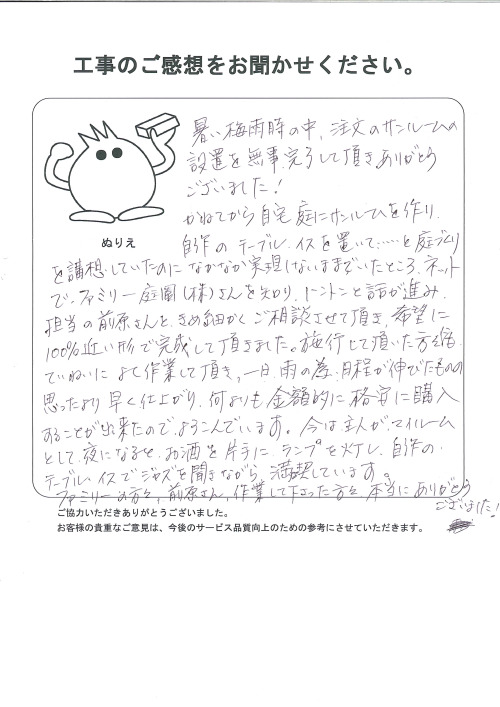 工事のご感想をお聞かせください。
暑い梅雨時の中、注文のサンルームの
設置を無事完了して頂きありがとう
ございました！
かねてから自宅庭にサンルームを作り、
ぬりえ
自作のテーブル、イスを置いて……と庭づくり
を構想していたのになかなか実現しないままでいたところ、ネット
で、ファミリー庭園(株)さんを知り、トントンと話が進み、
担当の前原さんと、きめ細かくご相談させて頂き、希望に
100%近い形で完成して頂きました。施行して頂いた方も
ていねいに よく作業して頂き、一日、雨の為、日程が伸びたものの
思ったより早く仕上がり、何よりも金額的に格安に購入
することが出来たのでよろこんでいます。今は主人が、マイルーム
として、夜になると、お酒を片手に、ランプを灯し、自作の
テーブル、イスでジャズを聞きながら 満喫しています。
ファミリーの方々、前原さん、作業して下さった方々、本当にありがとう
ございました！
ご協力いただきありがとうございました。
お客様の貴重なご意見は、今後のサービス品質向上のための参考にさせていただきます。